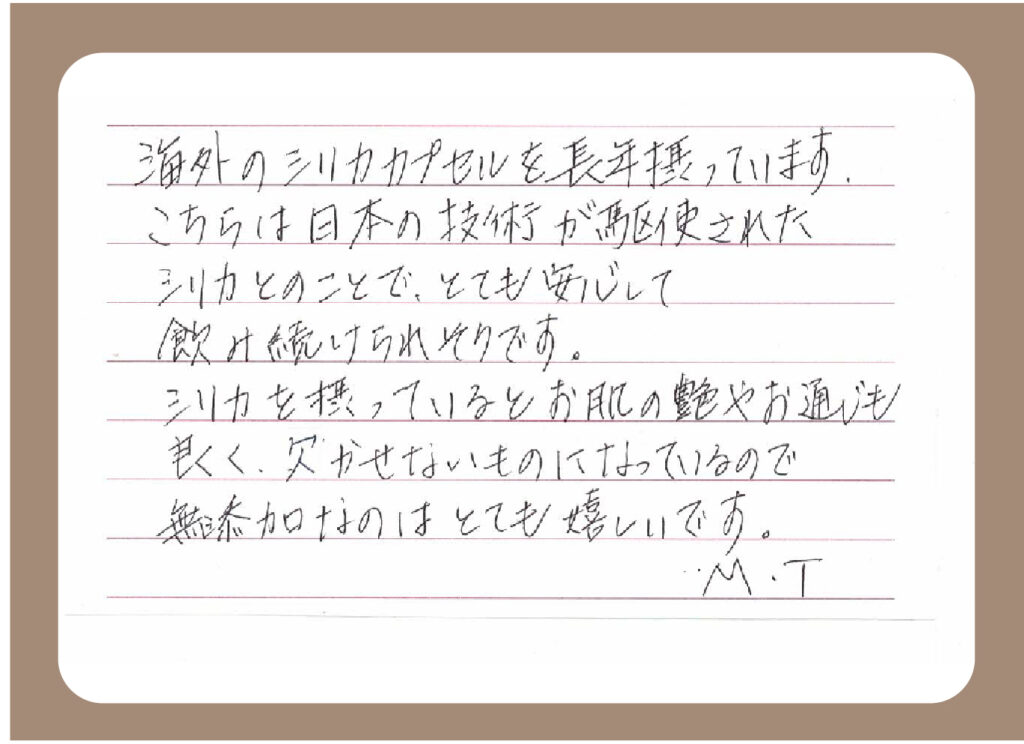 海外のシリカカプセルを長年摂っています.
こちらは日本の技術が駆使された
シリカとのことで、とても安心して
飲み続けられそうです。
シリカを摂っているとお肌の艶やお通じも
良く、欠かせないものになっているので
無添加なのはとても嬉しいです。
M.T